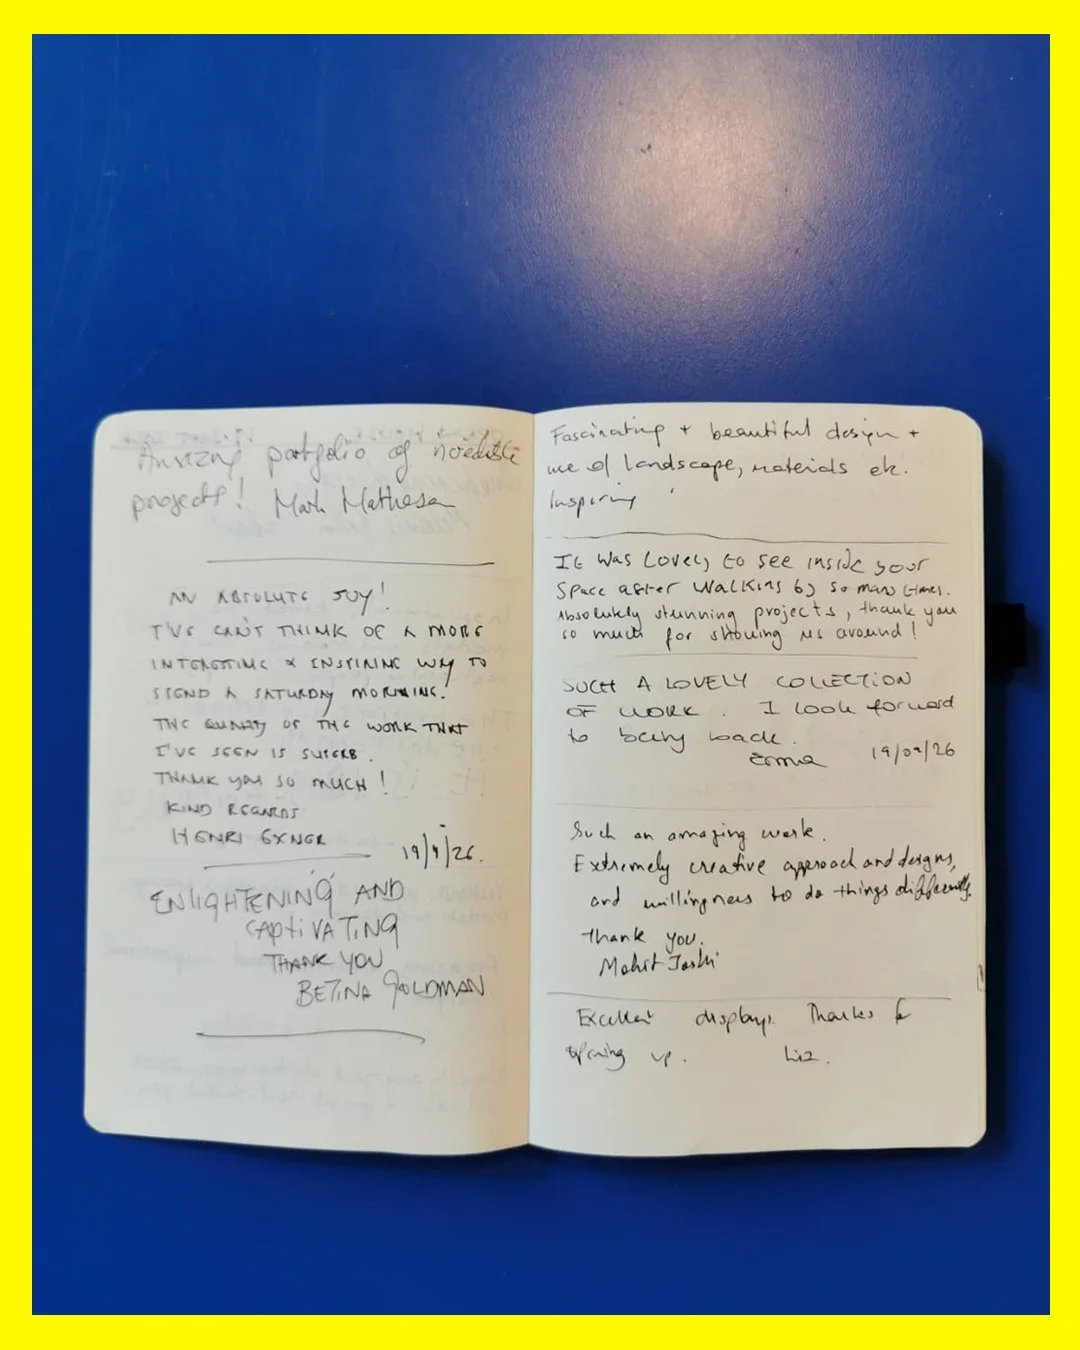 Amazing portfolio of incredible
projects! Mark Matheson
AN ABSOLUTE JOY!
I'VE CAN'T THINK OF A MORE
INTERESTING & INSPIRING WAY TO
SPEND A SATURDAY MORNING.
THE QUALITY OF THE WORK THAT
I'VE SEEN IS SUPERB.
THANK YOU SO MUCH!
KIND REGARDS
HENRI EXNER
19/9/26.
ENLIGHTENING AND
CAPtiVATING
THANK YOU
BETINA GOLDMAN
Fascinating + beautiful design +
use of landscape, materials etc.
Inspiring
It was Lovely to see inside your
space after walking by so many times.
Absolutely stunning projects, thank you
so much for showing us around!
SUCH A LOVELY COLLECTION
OF WORK. I look forward
to being back.
19/09/26
Such an amazing work.
Extremely creative approach and designs,
and willingness to do things differently.
Thank you.
Mohit Joshi
Excellent displays. Thanks for
opening up. Liz.